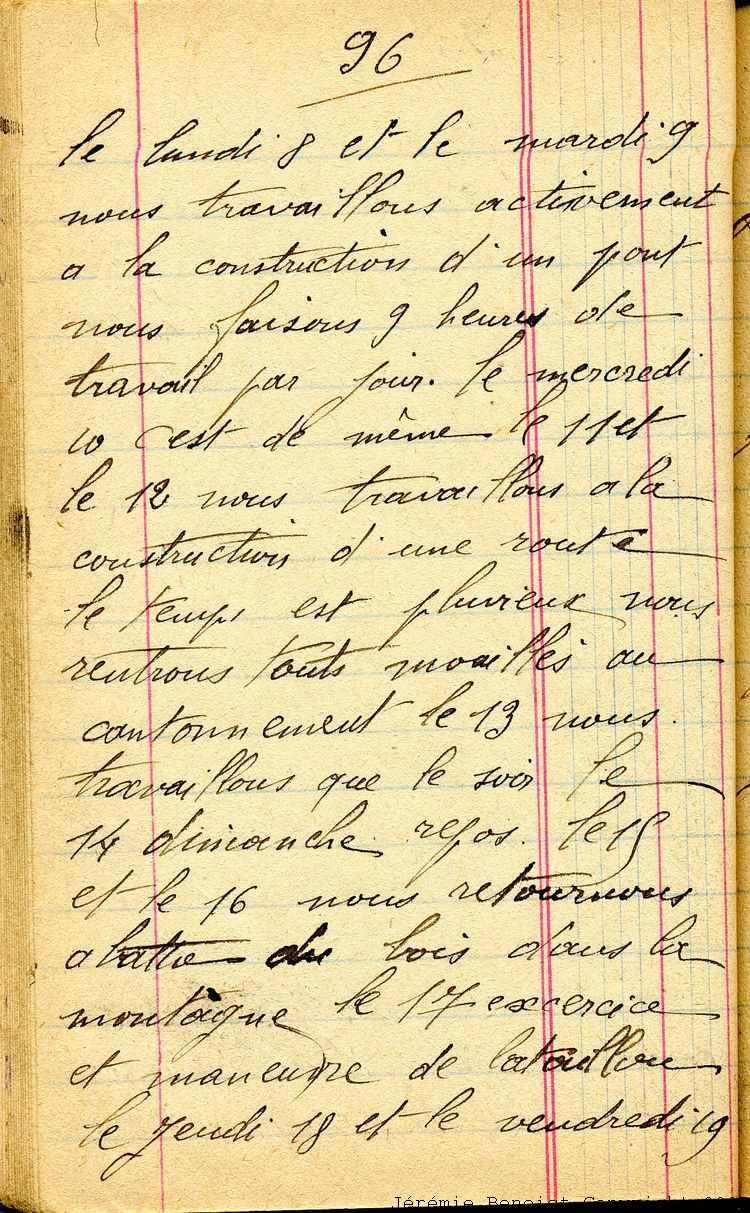 96
le lundi 8 et le mardi 9
nous travaillons activement
a la construction d'un pont
nous faisons 9 heures de
travail par jour. le mercredi
10 c'est de même le 11 et
le 12 nous travaillons a la
construction d'une route
le temps est pluvieux nous
rentrons touts mouillés au
cantonnement le 13 nous
travaillons que le soir le
14 dimanche repos. le 15
et le 16 nous retournons
abattre du bois dans la
montagne le 17 excercice
et maneuvre de bataillon
le Jeudi 18 et le vendredi 19
Jérémie Benoist Copyright